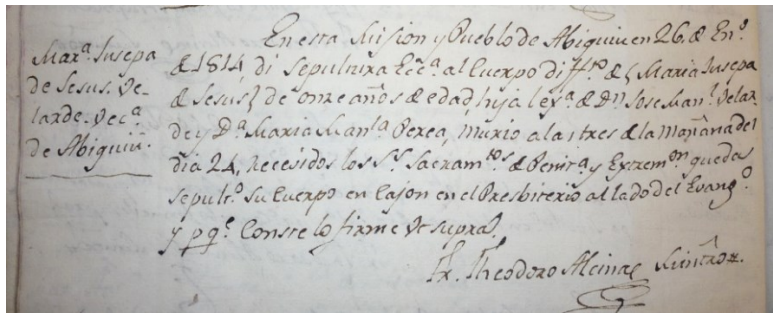 Mar.ª Jusepa
de Jesus. Ve-
larde. Vec.ª
de Abiquiú.
En esta Mision y Pueblo de Abiquiu en 26. de En.º
de 1814, di Sepultura Ecc.ª al Cuerpo di ff.to de { Maria Jusepa
de Jesus } de onze años de edad, hija ley.ª de D.n Jose Man.l Velar
de y D.ª Maria Man.la Perea, murio a las tres de la Mañana del
dia 24, recevidos los S.s Sacram.tos de Penit.ª y Extrem.on queda
sepult.º su Cuerpo en Cajon en el Presbiterio al lado del Evang.º
y p.ª q.e Conste lo firme vt supra.
Fr. Theodoro Alcina Mintrô.